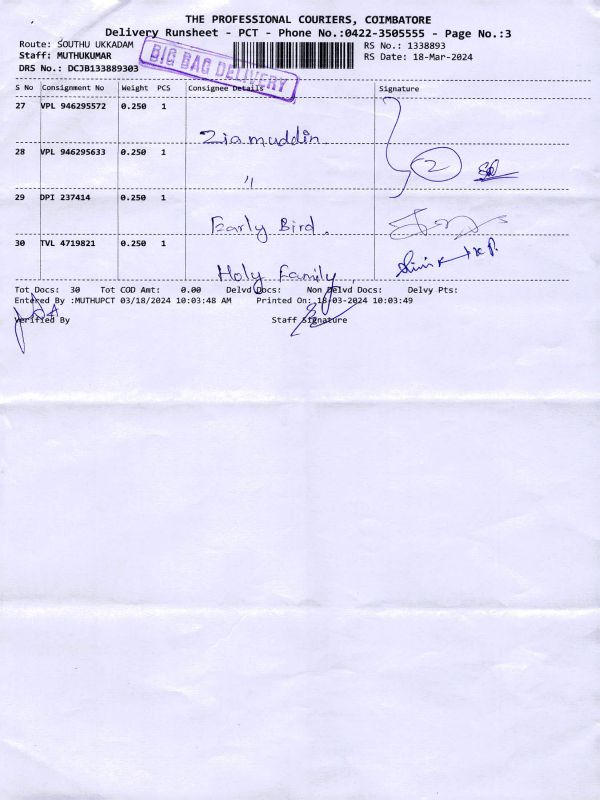 THE PROFESSIONAL COURIERS, COIMBATORE
Delivery Runsheet - PCT - Phone No.:0422-3505555 - Page No.:3
Route: SOUTHU UKKADAM
RS No.: 1338893
Staff: MUTHUKUMAR
RS Date: 18-Mar-2024
DRS No.: DCJB133889303
BIG BAG DELIVERY
S No Consignment No Weight PCS Consignee Details Signature
27 VPL 946295572 0.250 1
Ziamuddin
28 VPL 946295633 0.250 1
2
"
29 DPI 237414 0.250 1
Early Bird.
30 TVL 4719821 0.250 1
Holy Family
Tot Docs: 30 Tot COD Amt: 0.00 Delvd Docs: Non Delvd Docs: Delvy Pts:
Entered By :MUTHUPCT 03/18/2024 10:03:48 AM Printed On: 18-03-2024 10:03:49
Verified By Staff Signature